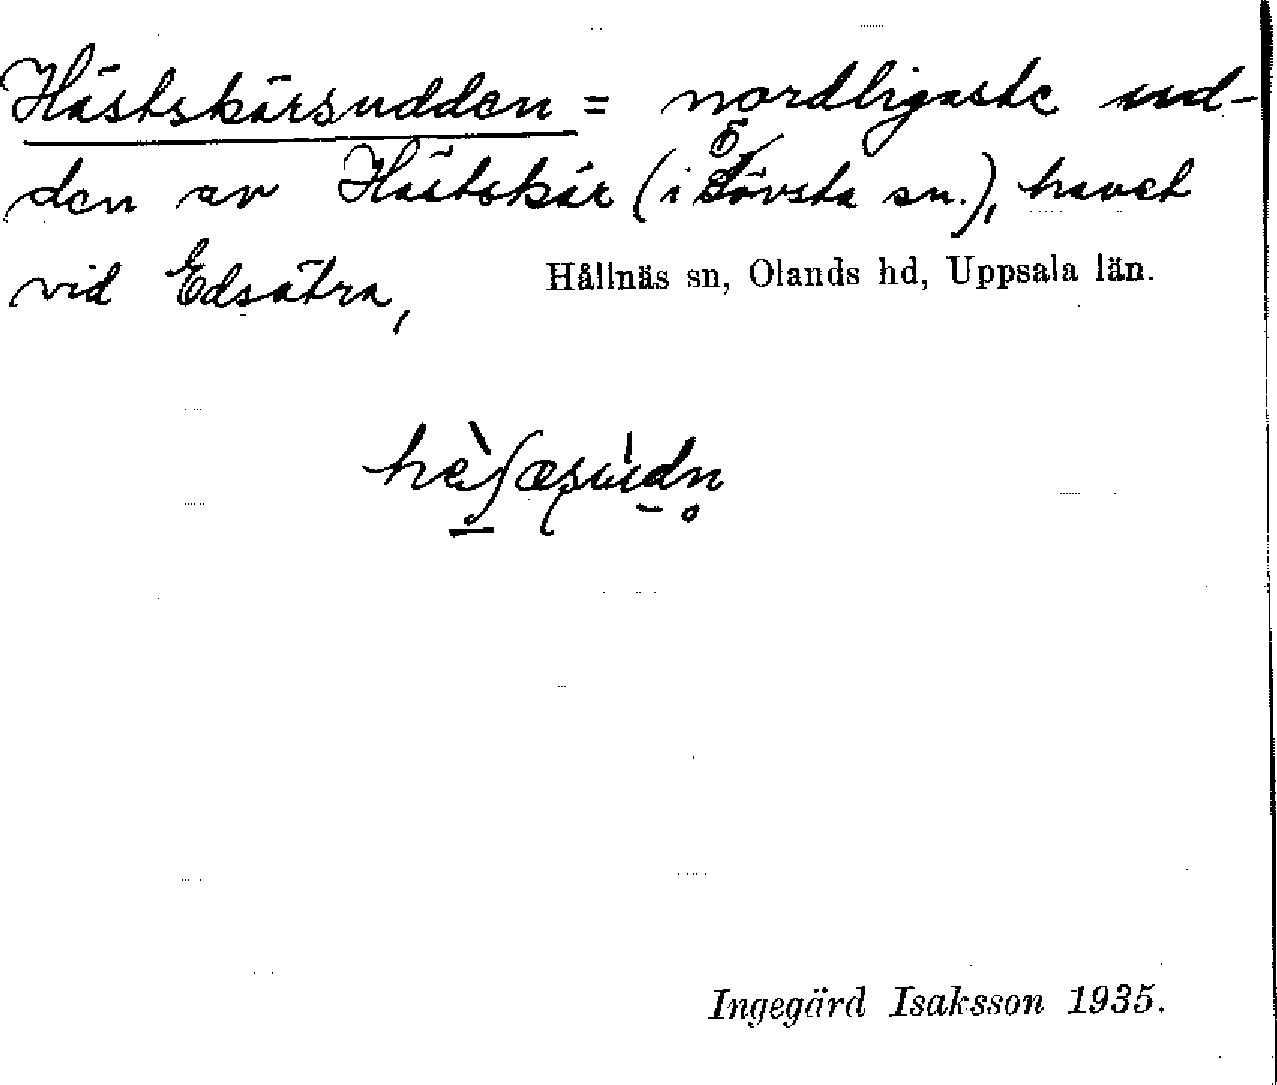 Hästskärsudden = nordligaste ud-
den av Hästskär (i Ö Lövsta sn.), havet
vid Edsätra,
Hållnäs sn, Olands hd, Uppsala län.
Ingegärd Isaksson 1935.